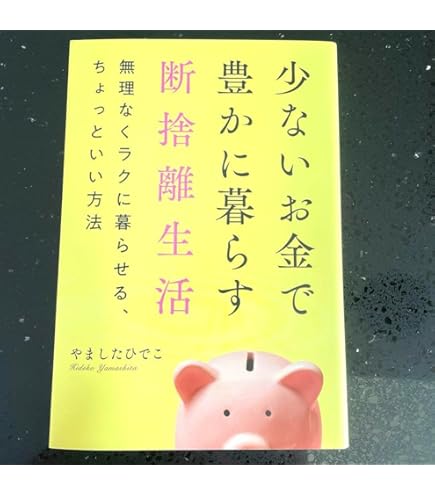 少ないお金で
豊かに暮らす
断捨離生活
無理なくラクに暮らせる、
ちょっといい方法
やましたひでこ
Hideko Yamashita